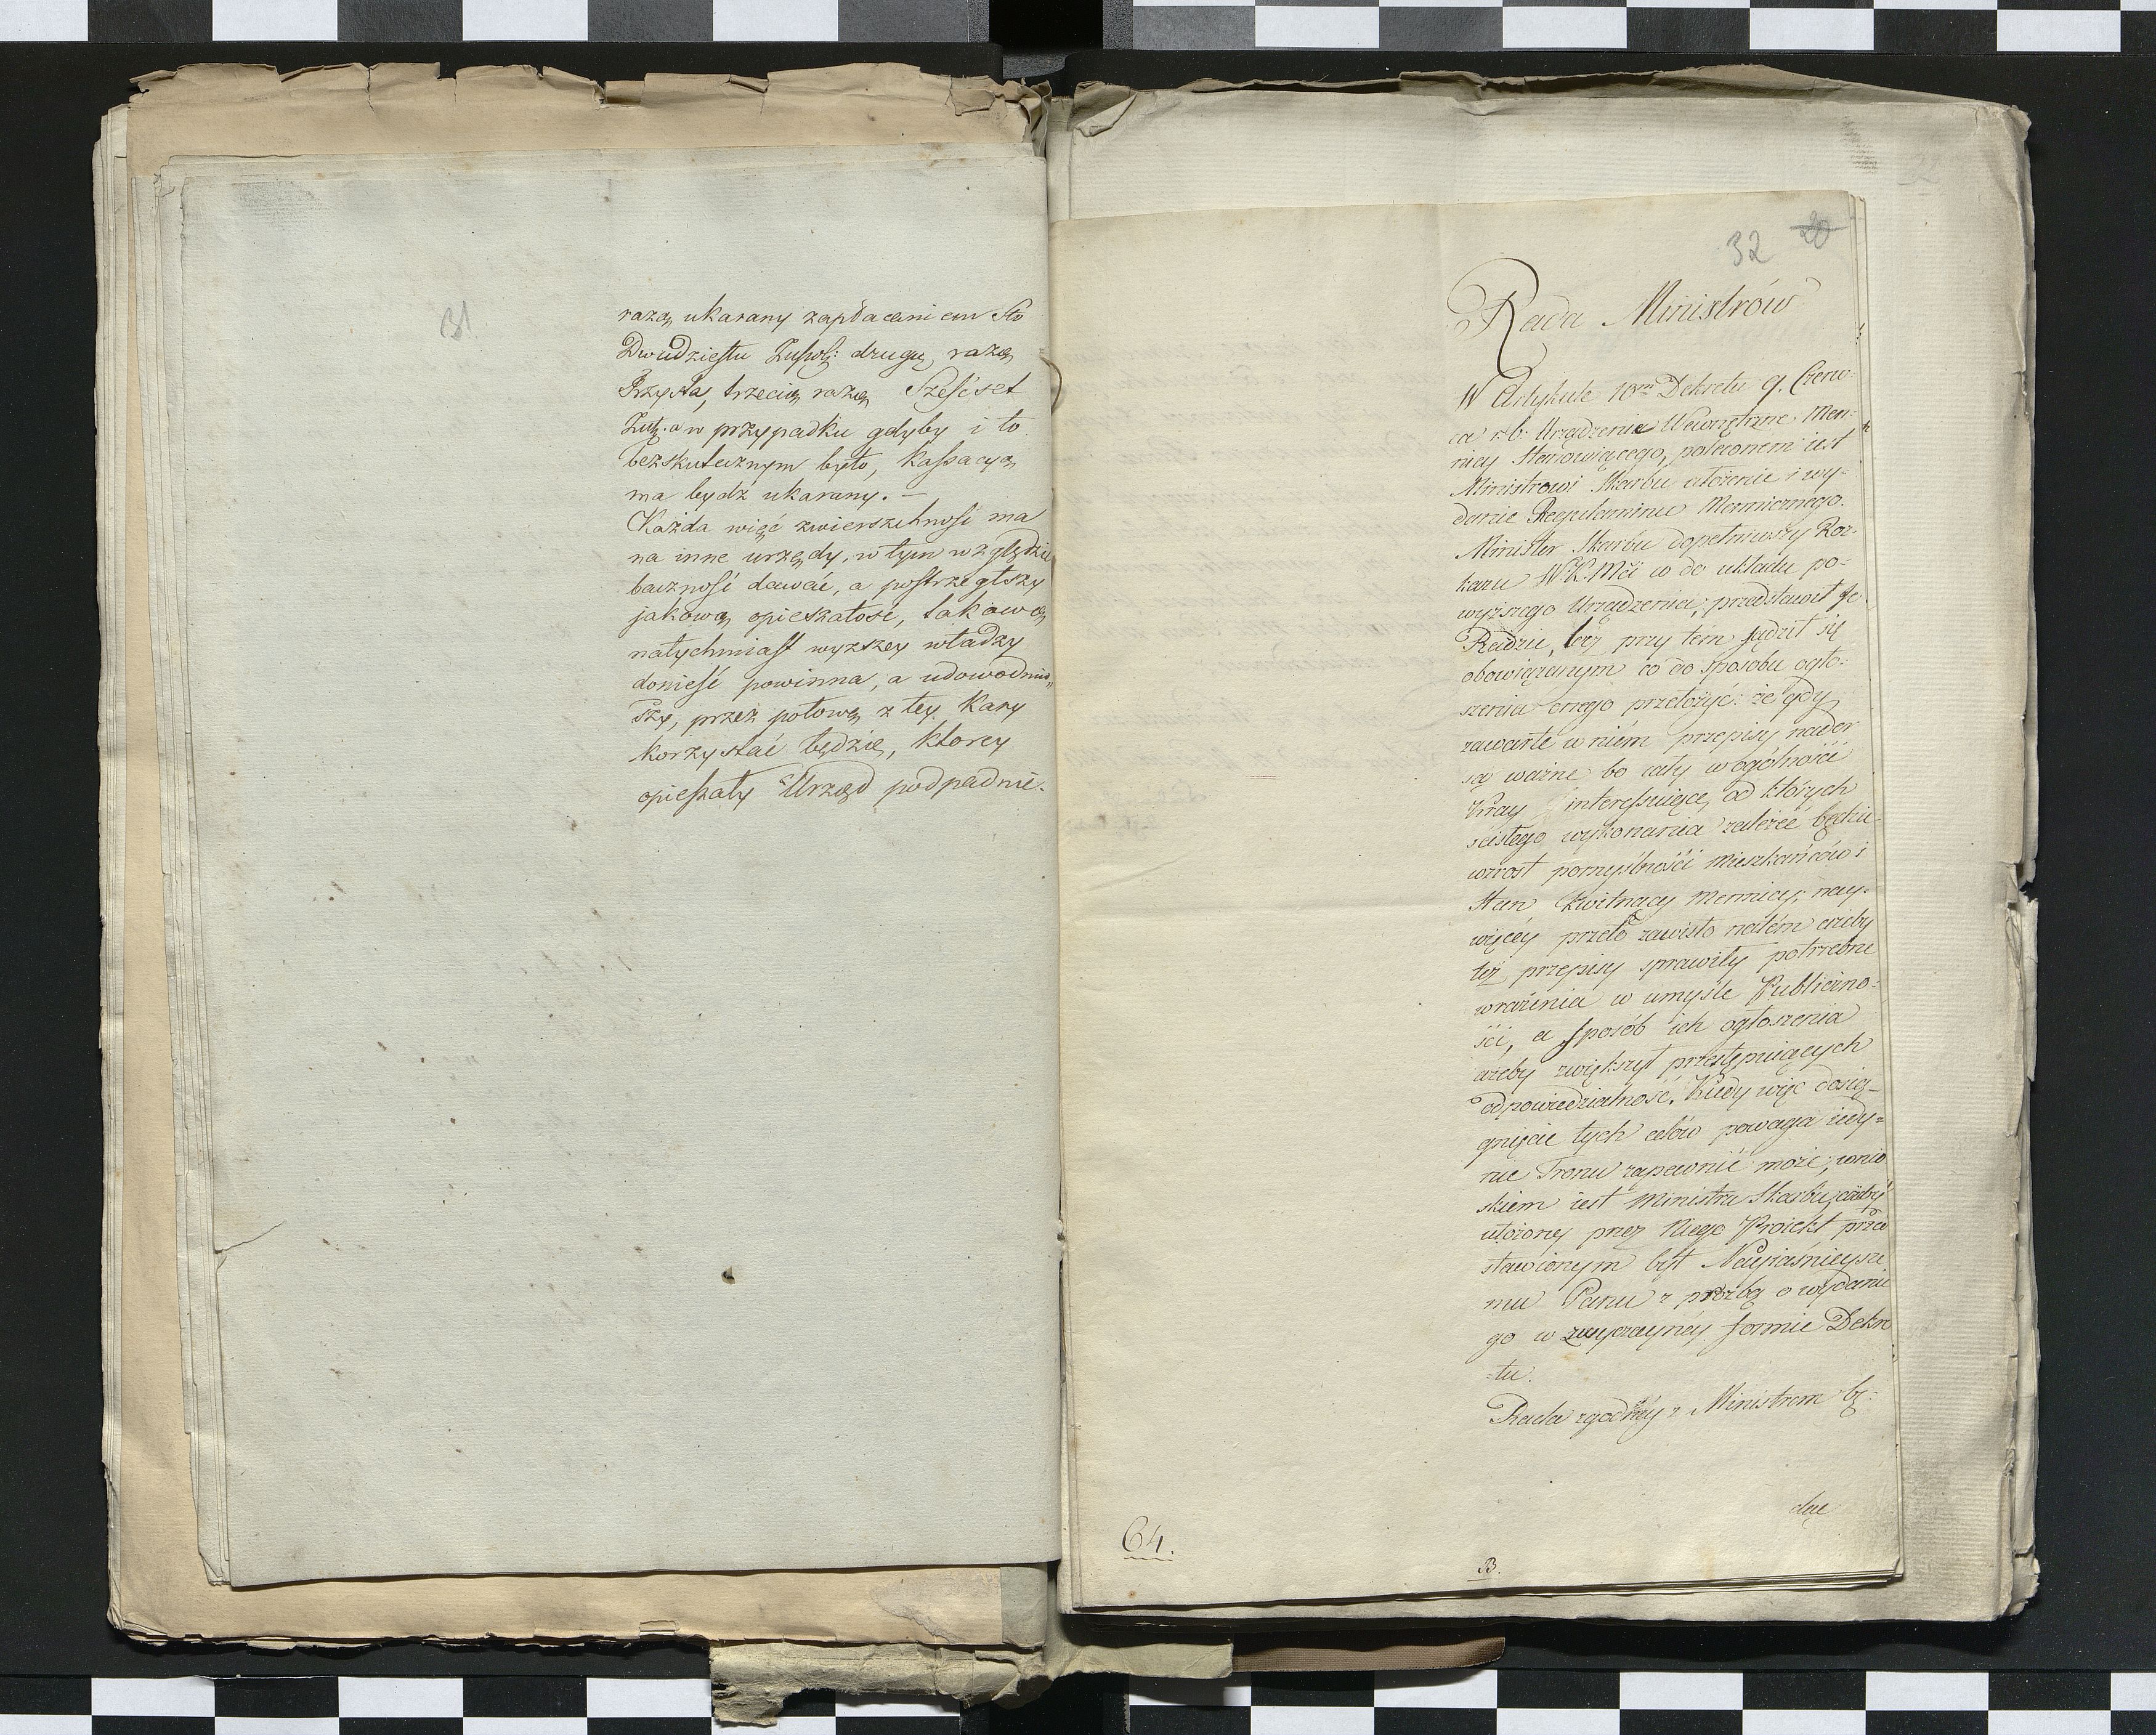 31
razą ukarany zapłaceniem Sto
Dwudziestu Złpol: drugą razą
Trzysta, trzecią razą Sześćset
Złt. a w przypadku gdyby i to
bezskutecznym było, kassacyą
ma bydź ukarany. —
Każda więć zwierzchność ma
na inne urzędy, w tym względzie
baczność dawać, a postrzegłszy
jakową opieszałość, takową
natychmiast wyższey władzy
donieść powinna, a udowodniw„
szy, przez połowę z tey kary
korzystać będzie, ktorey
opieszały Urząd podpadnie.
32 20
Rada Ministrów
W Artykule 10m Dekretu 9. Czerw-
ca r. b. Urządzenie Wewnętrzne Men-
nicy Stanowiącego, poleconem iest
Ministrowi Skarbu ułożenie i wy-
danie Regulaminu Mennicznego.
Minister Skarbu dopełniwszy Roz-
kazu W. K. Mći co do układu po-
wyższego Urządzenia; przedstawił Je
Radzie, lecz przy tém sądził się
obowiązanym co do sposobu ogło-
szenia onego przełożyć: że gdy
zawarte w niém przepisy nader
są ważne bo cały w ogólności
Kray interessuiące, od których
scisłego wykonania zależeć będzie
wzrost pomyślności mieszkańców i
Stan kwitnący mennicy; nay-
więcéy przeto zawisło na tém ażeby
też przepisy sprawiły potrzebne
wrażenia w umyśle Publiczno-
ści, a sposób ich ogłoszenia
ażeby zwiększył przestępuiących
odpowiedzialność. Kiedy więc dosią-
gnięcie tych celów powaga iedy-
nie Tronu zapewnić może; wnio
skiem iest Ministra Skarbu, ażeby
ułożony przez Niego Proiekt przed
stawionym był Nayiaśnieysze
mu Panu z prozbą o wydanie
go w zwyczaynéy formie Dekre
-tu.
Rada zgodnéy z Ministrem bę-
dąc
64.
B.